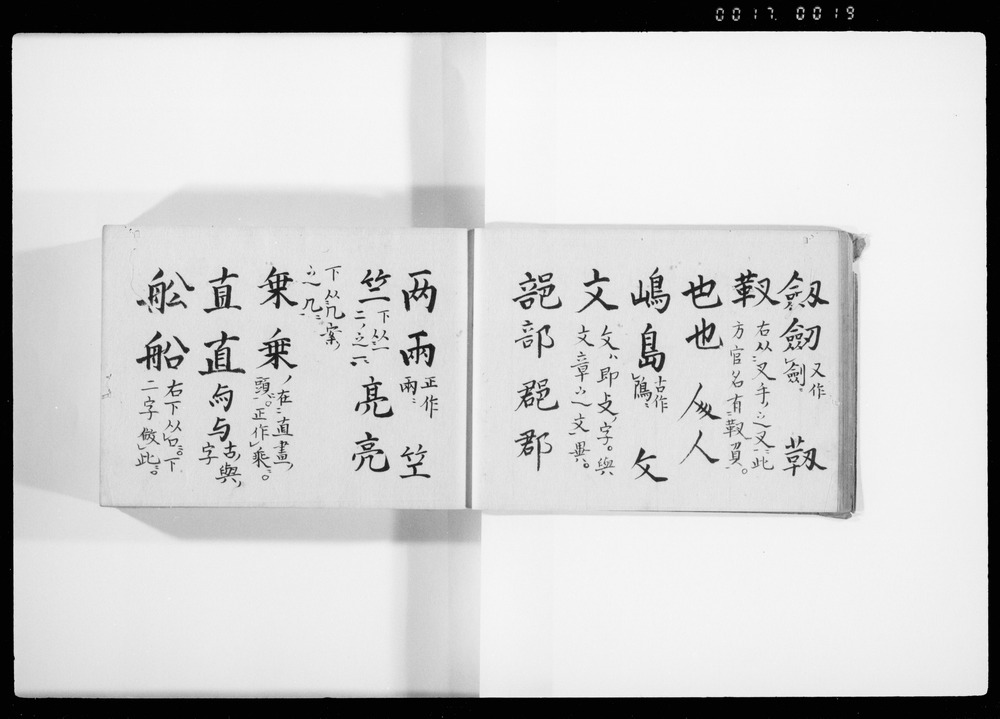 0017 0019
劔劒 又作劍 靫
靫 右从叉手之叉此
方官名有靫負。
也也 从人
嶋島 古作隝 攵
文 攵即攴字。與
文章之文異。
部 郡
两兩 正作兩 竺
竺 下从二
二之二 亮亮
下从几案
之几
乗乗 ノ在直畫
頭。正作乘。
直直 与与 古與
字
舩船 右下从㕣。下
二字倣此。